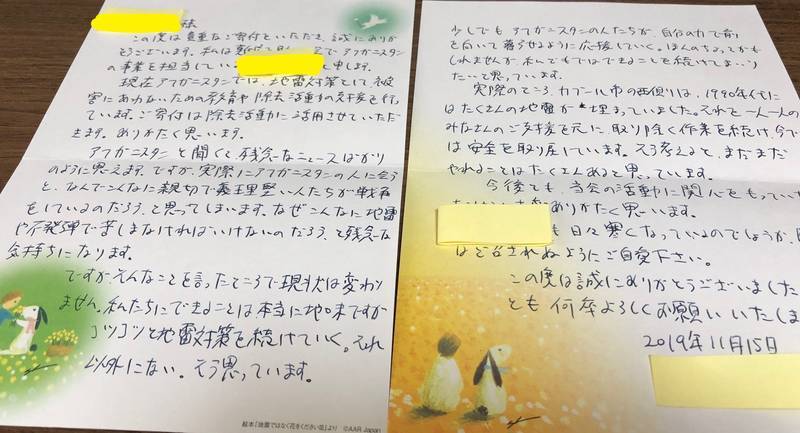 様
この度は貴重なご寄付をいただき、誠にありが
とうございます。私は
アフガニスタン
の事業を担当してい
と申します。
現在アフガニスタンでは、地雷対策として被
害にあわないための教育や除去活動の支援を行っ
ています。ご寄付は除去活動に活用させていただ
きます。ありがたく思います。
アフガニスタンと聞くと、残念なニュースばかり
のように思えます。ですが、実際にアフガニスタンの人に会う
と、なんでこんなに親切で義理堅い人たちが戦争
をしているのだろう、と思ってしまいます。なぜこんなに地雷
や不発弾で苦しまなければいけないのだろう、と残念な
気持ちになります。
ですが、そんなことを言ったところで現状は変わり
ません。私たちにできることは本当に地味ですが
コツコツと地雷対策を続けていく。それ
以外にない。そう思っています。
絵本「地雷ではなく花をください」より ©AAR Japan
少しでもアフガニスタンの人たちが、自分の力で前
を向いて暮らせるように応援していく。ほんのちょっとかも
しれませんが、私どもではできることを続けてまいり
たいと思っています。
実際のところ、カブール市の西側は、1990年代に
はたくさんの地雷が埋まっていました。それを一人一人の
みなさんのご支援を元に取り除く作業を続け、今で
は安全を取り戻しています。そう考えると、まだまだ
やれることはたくさんあると思っています。
今後とも、当会の活動に関心をもってい
ありがたく思います。
も日々寒くなっているのでしょうか。
ほど召されぬようにご自愛下さい。
この度は誠にありがとうございました
とも何卒よろしくお願いいたしま
2019年11月15日